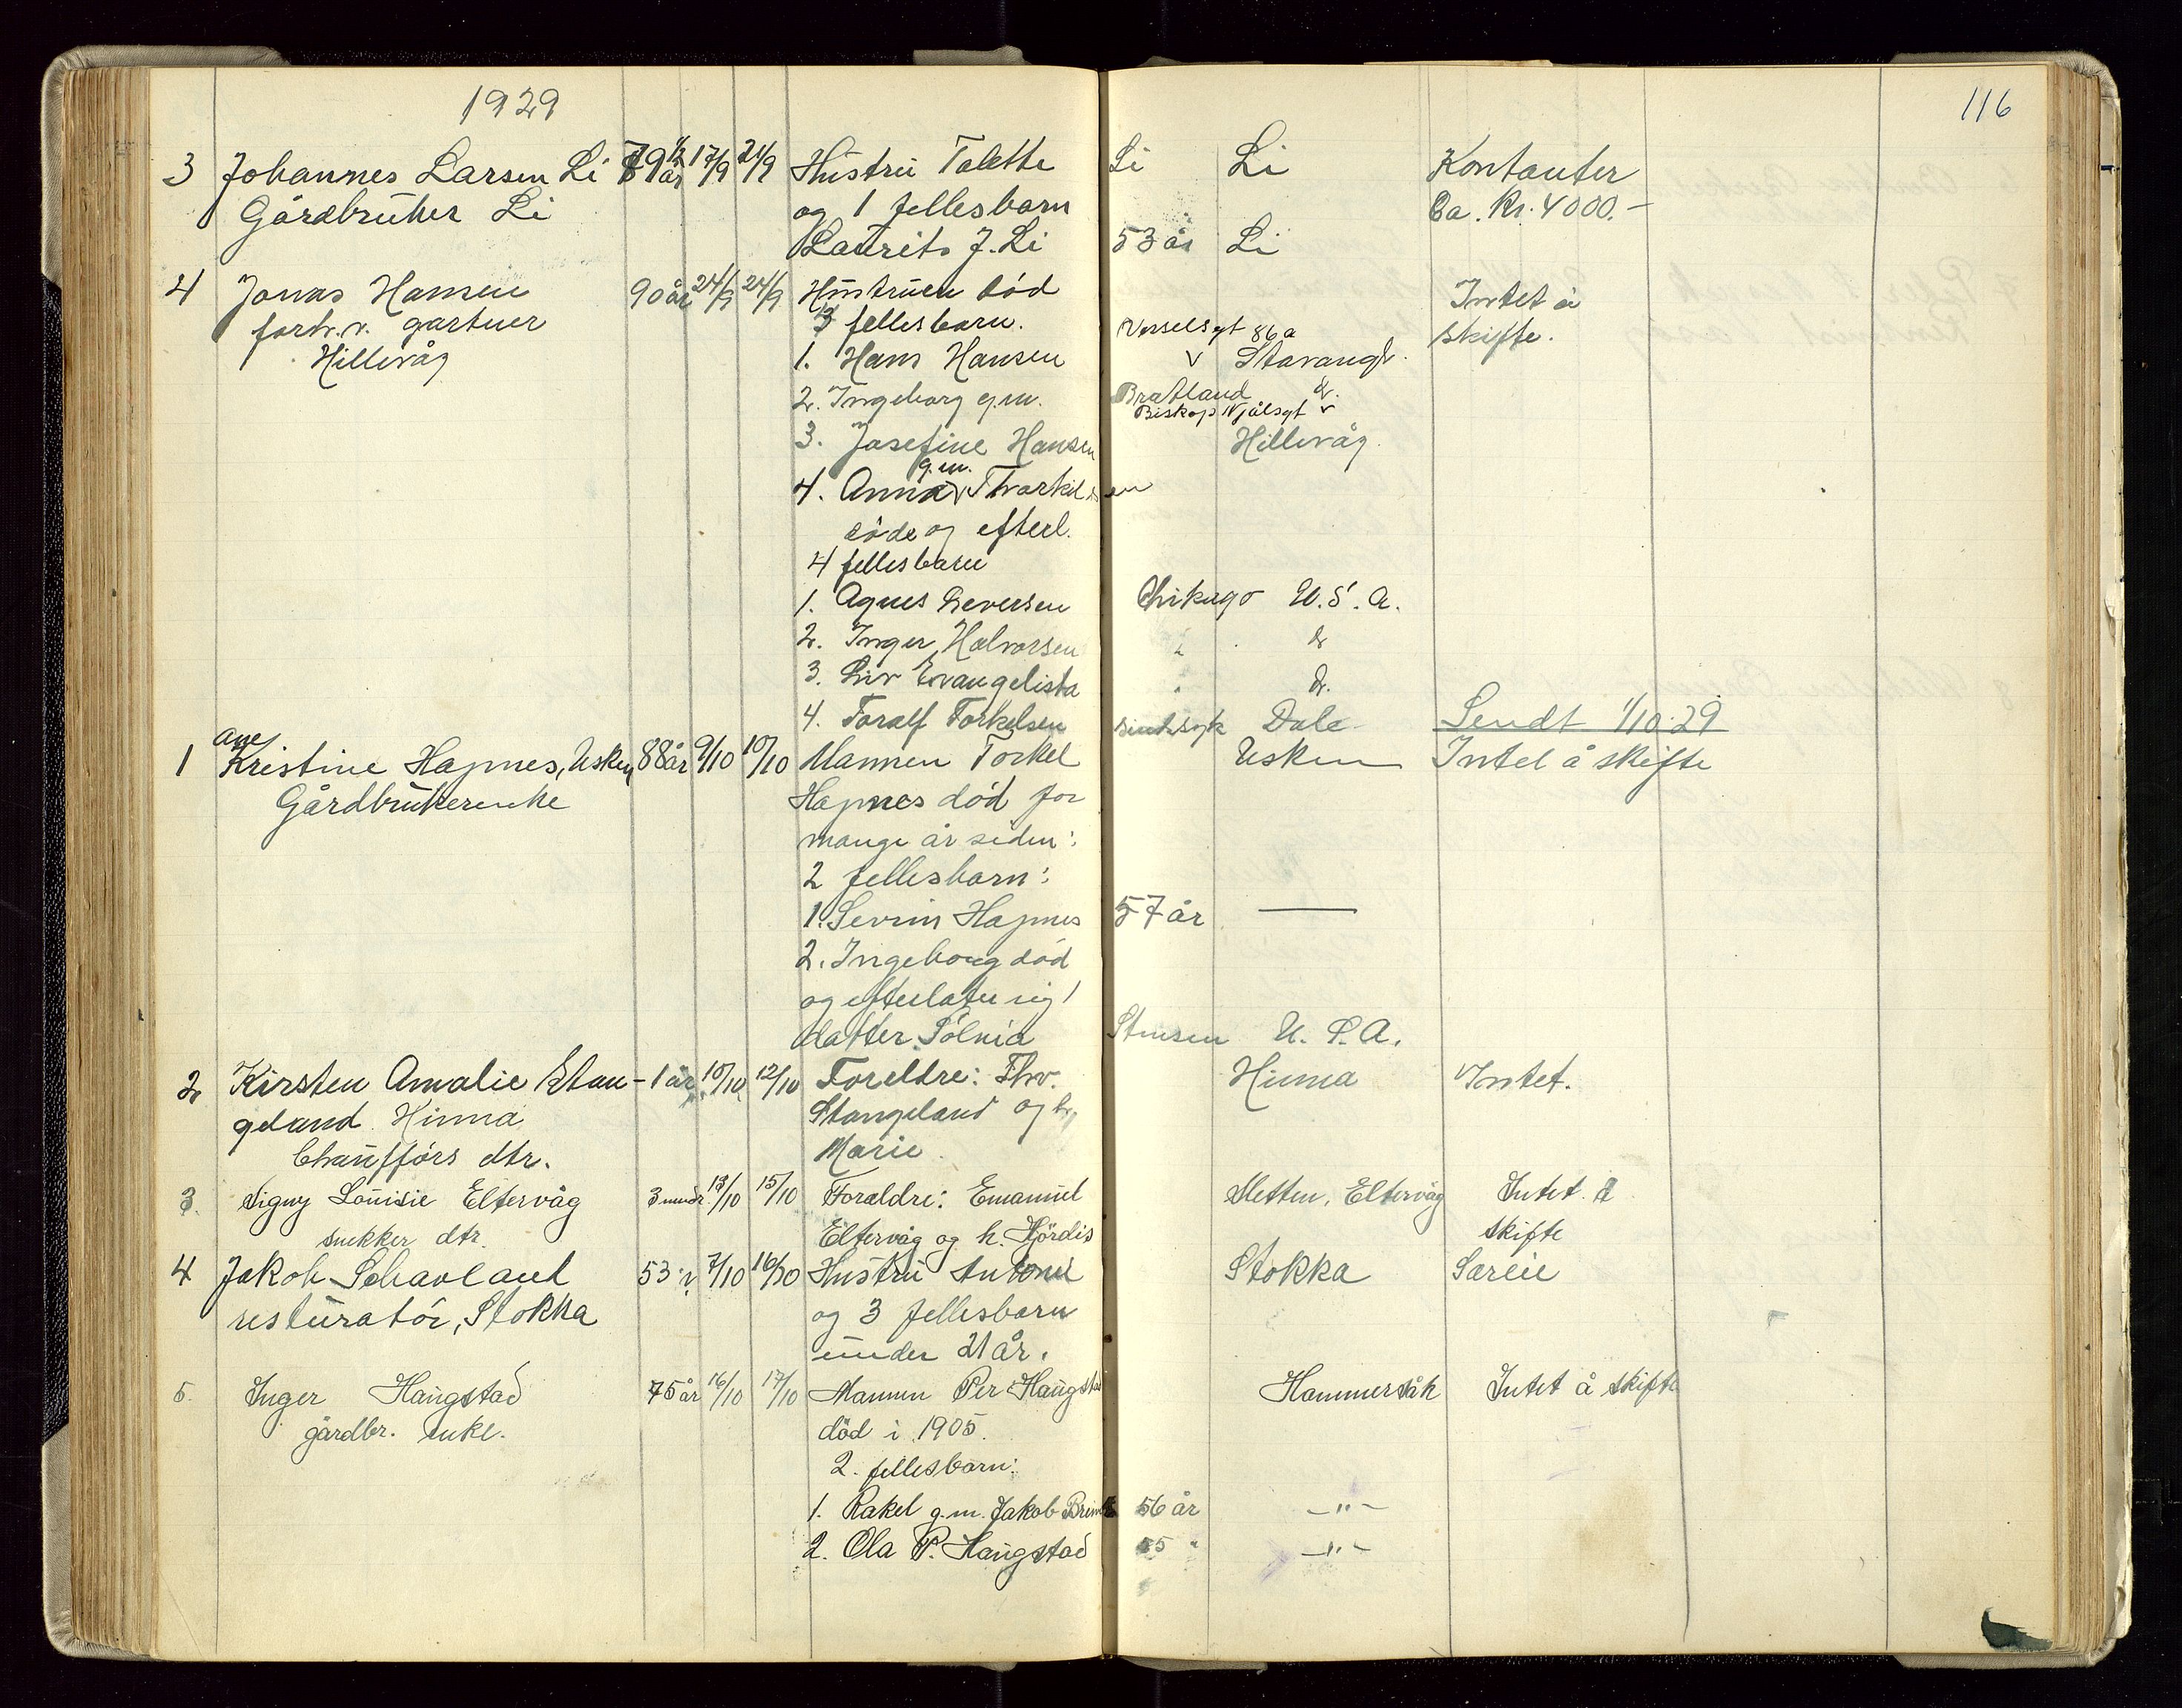 1929
116
3 Johannes Larsen Li 79 1/2 år 17/9 21/9 Hustru Talette Li Li Kontanter
Gårdbruker Li og 1 fellesbarn Ca. Kr. 4000.-
Laurits J. Li 53 år Li
4 Jonas Hansen 90 år 24/9 24/9 Hustruen död Intet å
forh.v. gartner fellesbarn. skifte.
Hillevåg 1. Hans Hansen Verselsgt 86a v Stavanger.
2. Ingeborg g.m. Bratland
Biskop Njålsgt v
3. Josefine Hansen Hillevåg.
4. Anna g.m. Thorkildsen
döde og efterl.
4 fellesbarn
1. Agnes Seversen Chikago U.S.A.
2. Inger Halvorsen " do
3. Liv Evangelista " do.
4. Toralf Torkelsen sindssyk Dale Sendt 1/10 29
1 Ane Kristine Hapnes, Usken 88 år 9/10 10/10 Mannen Torkel Usken Intet å skifte
Gårdbrukerenke Hapnes död for
mange år siden:
2 fellesbarn:
1. Sevrin Hapnes 57 år —
2. Ingeborg död
og efterlater sig 1
datter Solnia Stensen U.S.A.
2 Kirsten Amalie Stan- 1 år 10/10 12/10 Foreldre: Thv. Hinna Intet.
geland Hinna Stangeland og h.
Chaufförs dtr. Marie.
3. Signy Louisie Eltervåg 3 mndr. 13/10 15/10 Foreldre: Emanuel Sletten, Eltervåg Intet å
snekker dtr. Eltervåg og h. Hjördis skifte
4 Jakob Schavland 53 år 7/10 16/10 Hustru Antonie Stokka Særeie
resturatör, Stokka og 3 fellesbarn
under 21 år.
5. Inger Haugstad 75 år 16/10 17/10 Mannen Per Haugstad Hammersåk Intet å skifte
gårdbr. enke. död i 1905.
2. fellesbarn:
1. Rakel g.m. Jakob 56 år —"—
2. Ola P. Haugstad 55 " —"—